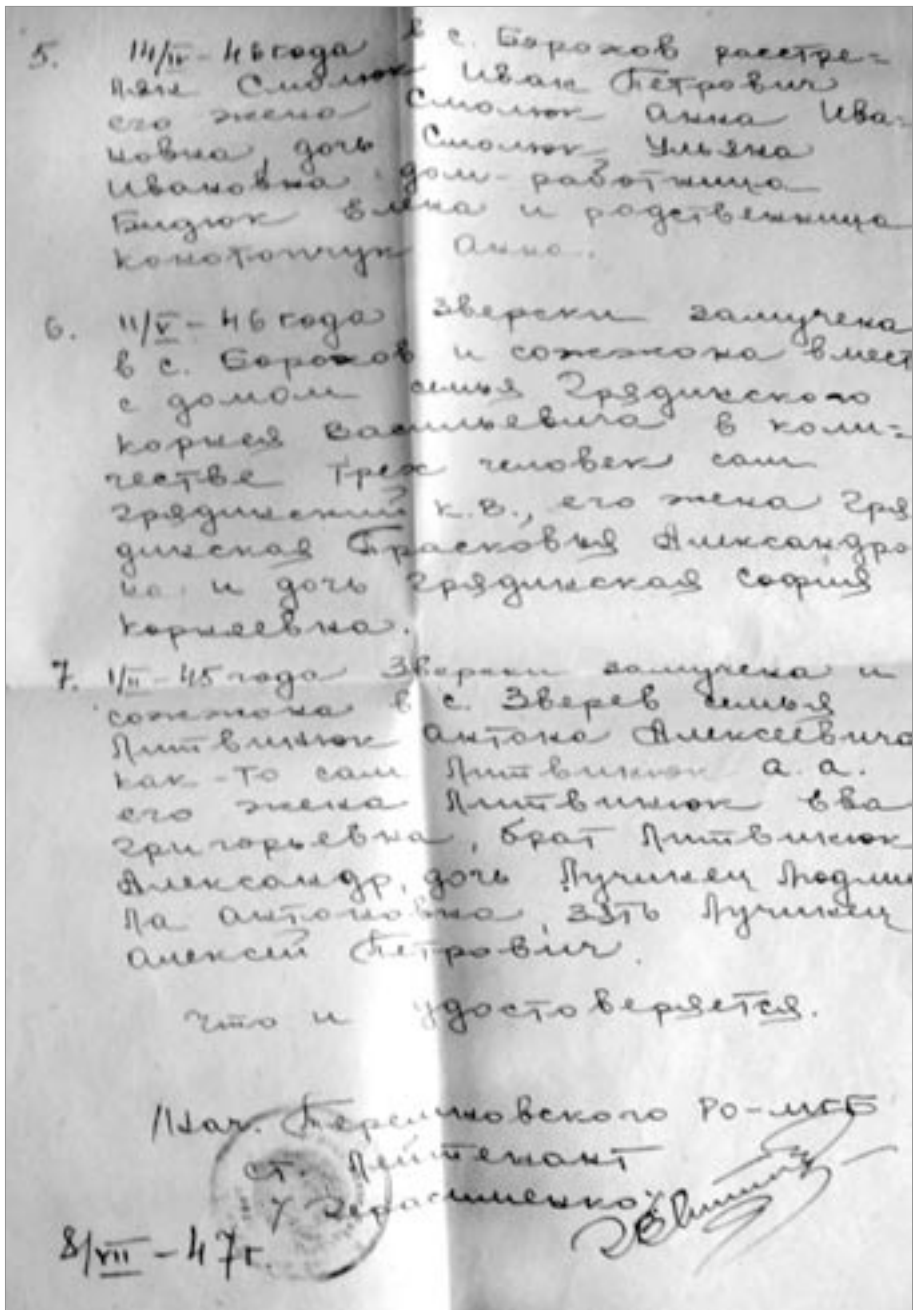 5. 14/IV-46 года в с. Борохов расстре=
лян Смолюк Иван Петрович
его жена Смолюк Анна Ива-
новна дочь Смолюк Ульяна
Ивановна дом-работница
Бидюк Елена и родственница
Конотопчук Анна.
6. 11/V-46 года зверски замучена
в с. Борохов и сожжона вмест
с домом семья Грядинского
Корнея Васильевича в коли=
честве трех человек сам
Грядинский К.В., его жена Гря
динская Прасковья Александро
на и дочь Грядинская София
Корнеевна.
7. 1/II-45 года Зверски замучена и
сожжона в с. Зверев семья
Литвинюк Антона Алексеевича
как-то сам Литвинюк А.А.
его жена Литвинюк Ева
Григорьевна, брат Литвинюк
Александр, дочь Лучинец Людми
ла Антоновна, зять Лучинец
Алексей Петрович.
Что и удостоверяется.
/Нач. Теремновского РО-МГБ
ст. Лейтенант
/Герасименко/
8/VII-47г.